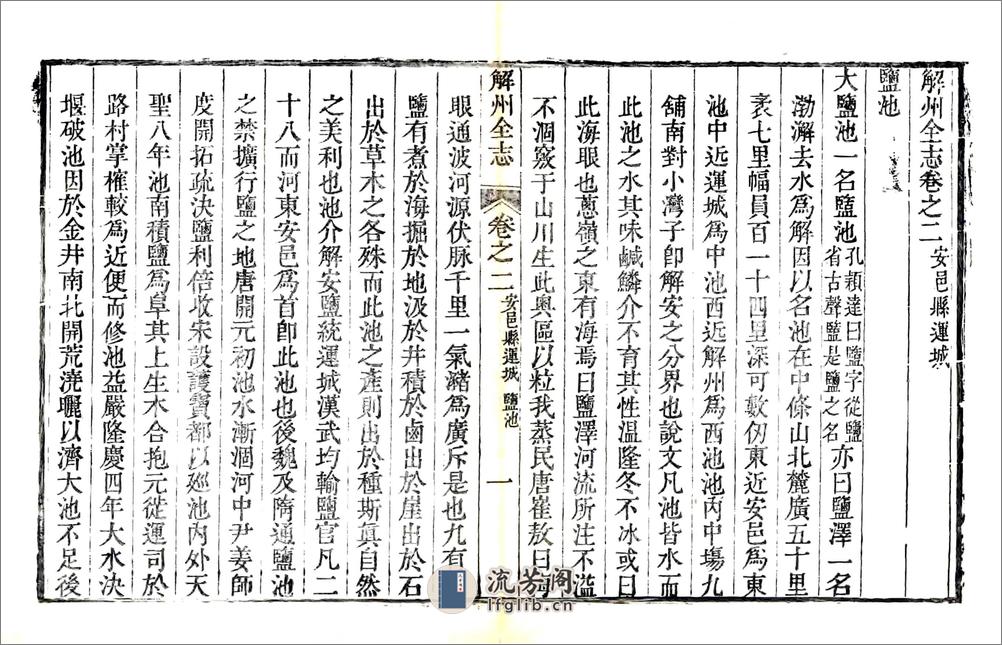 解州全志卷之二 安邑縣運城
鹽池
大鹽池一名鹽池孔穎達曰鹽字從鹽省古聲鹽是鹽之名亦曰鹽澤一名
渤澥去水為解因以名池在中條山北麓廣五十里
袤七里幅員百一十四里深可數仞東近安邑為東
池中近運城為中池西近解州為西池池內中場九
舖南對小灣子卽解安之分界也說文凡池皆水而
此池之水其味鹹鱗介不育其性溫隆冬不冰或曰
此海眼也蔥嶺之東有海焉曰鹽澤河流所注不溢
不涸竅于山川生此奧區以粒我蒸民唐崔敖曰
解州全志 卷之二 安邑縣運城 鹽池 一
眼通波河源伏脉千里一氣瀦為廣斥是也九有
鹽有煮於海掘於地汲於井積於鹵出於崖出於石
出於草木之各殊而此池之產則出於種斯眞自然
之美利也池介解安鹽統運城漢武均輸鹽官凡二
十八而河東安邑為首卽此池也後魏及隋通鹽池
之禁擴行鹽之地唐開元初池水漸涸河中尹姜師
度開拓疏決鹽利倍收宋設護寶都以廵池內外天
聖八年池南積鹽為阜其上生木合抱元從運司於
路村掌榷較為近便而修池益嚴隆慶四年大水決
堰破池因於金井南北開荒澆曬以濟大池不足後
流芳阁
lfglib.cn